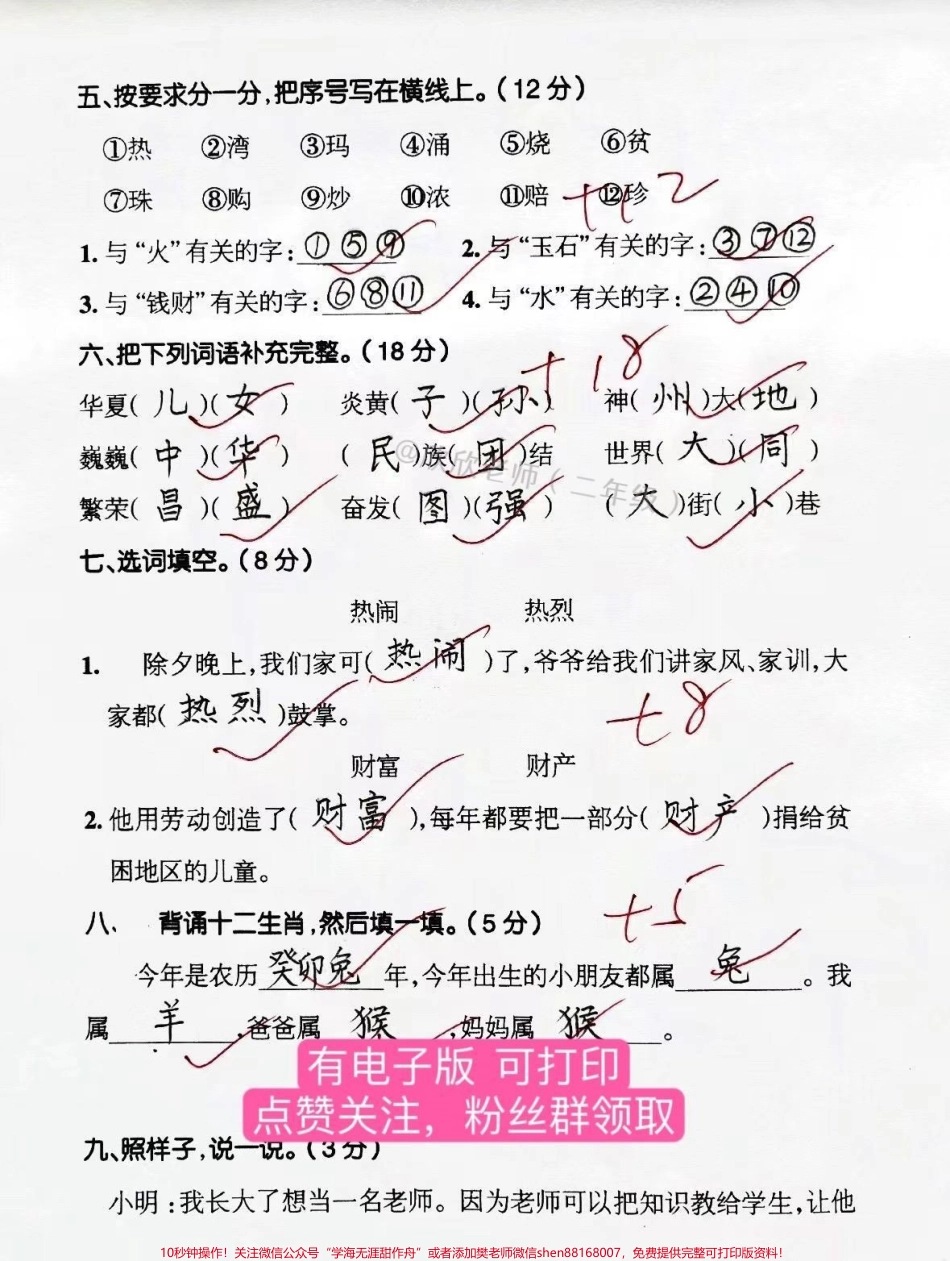 五、按要求分一分,把序号写在横线上。(12分)
①热 ②湾 ③玛 ④涌 ⑤烧 ⑥贫
⑦珠 ⑧购 ⑨炒 ⑩浓 ⑪赔 ⑫珍
+12
1. 与“火”有关的字:①⑤⑨ 2. 与“玉石”有关的字:③⑦⑫
3. 与“钱财”有关的字:⑥⑧⑪ 4. 与“水”有关的字:②④⑩
六、把下列词语补充完整。(18分)
+18
华夏(儿)(女) 炎黄(子)(孙) 神(州)大(地)
巍巍(中)(华) (民)族(团)结 世界(大)(同)
欣老师(二年级)
繁荣(昌)(盛) 奋发(图)(强) (大)街(小)巷
七、选词填空。(8分)
热闹 热烈
1. 除夕晚上,我们家可(热闹)了,爷爷给我们讲家风、家训,大
家都(热烈)鼓掌。
+8
财富 财产
2. 他用劳动创造了(财富),每年都要把一部分(财产)捐给贫
困地区的儿童。
八、 背诵十二生肖,然后填一填。(5分)
+5
今年是农历癸卯兔年,今年出生的小朋友都属兔。我
属羊,爸爸属猴,妈妈属猴。
有电子版 可打印
点赞关注，粉丝群领取
九、照样子,说一说。(3分)
小明:我长大了想当一名老师。因为老师可以把知识教给学生,让他
10秒钟操作！关注微信公众号“学海无涯甜作舟”或者添加樊老师微信shen88168007，免费提供完整可打印版资料！